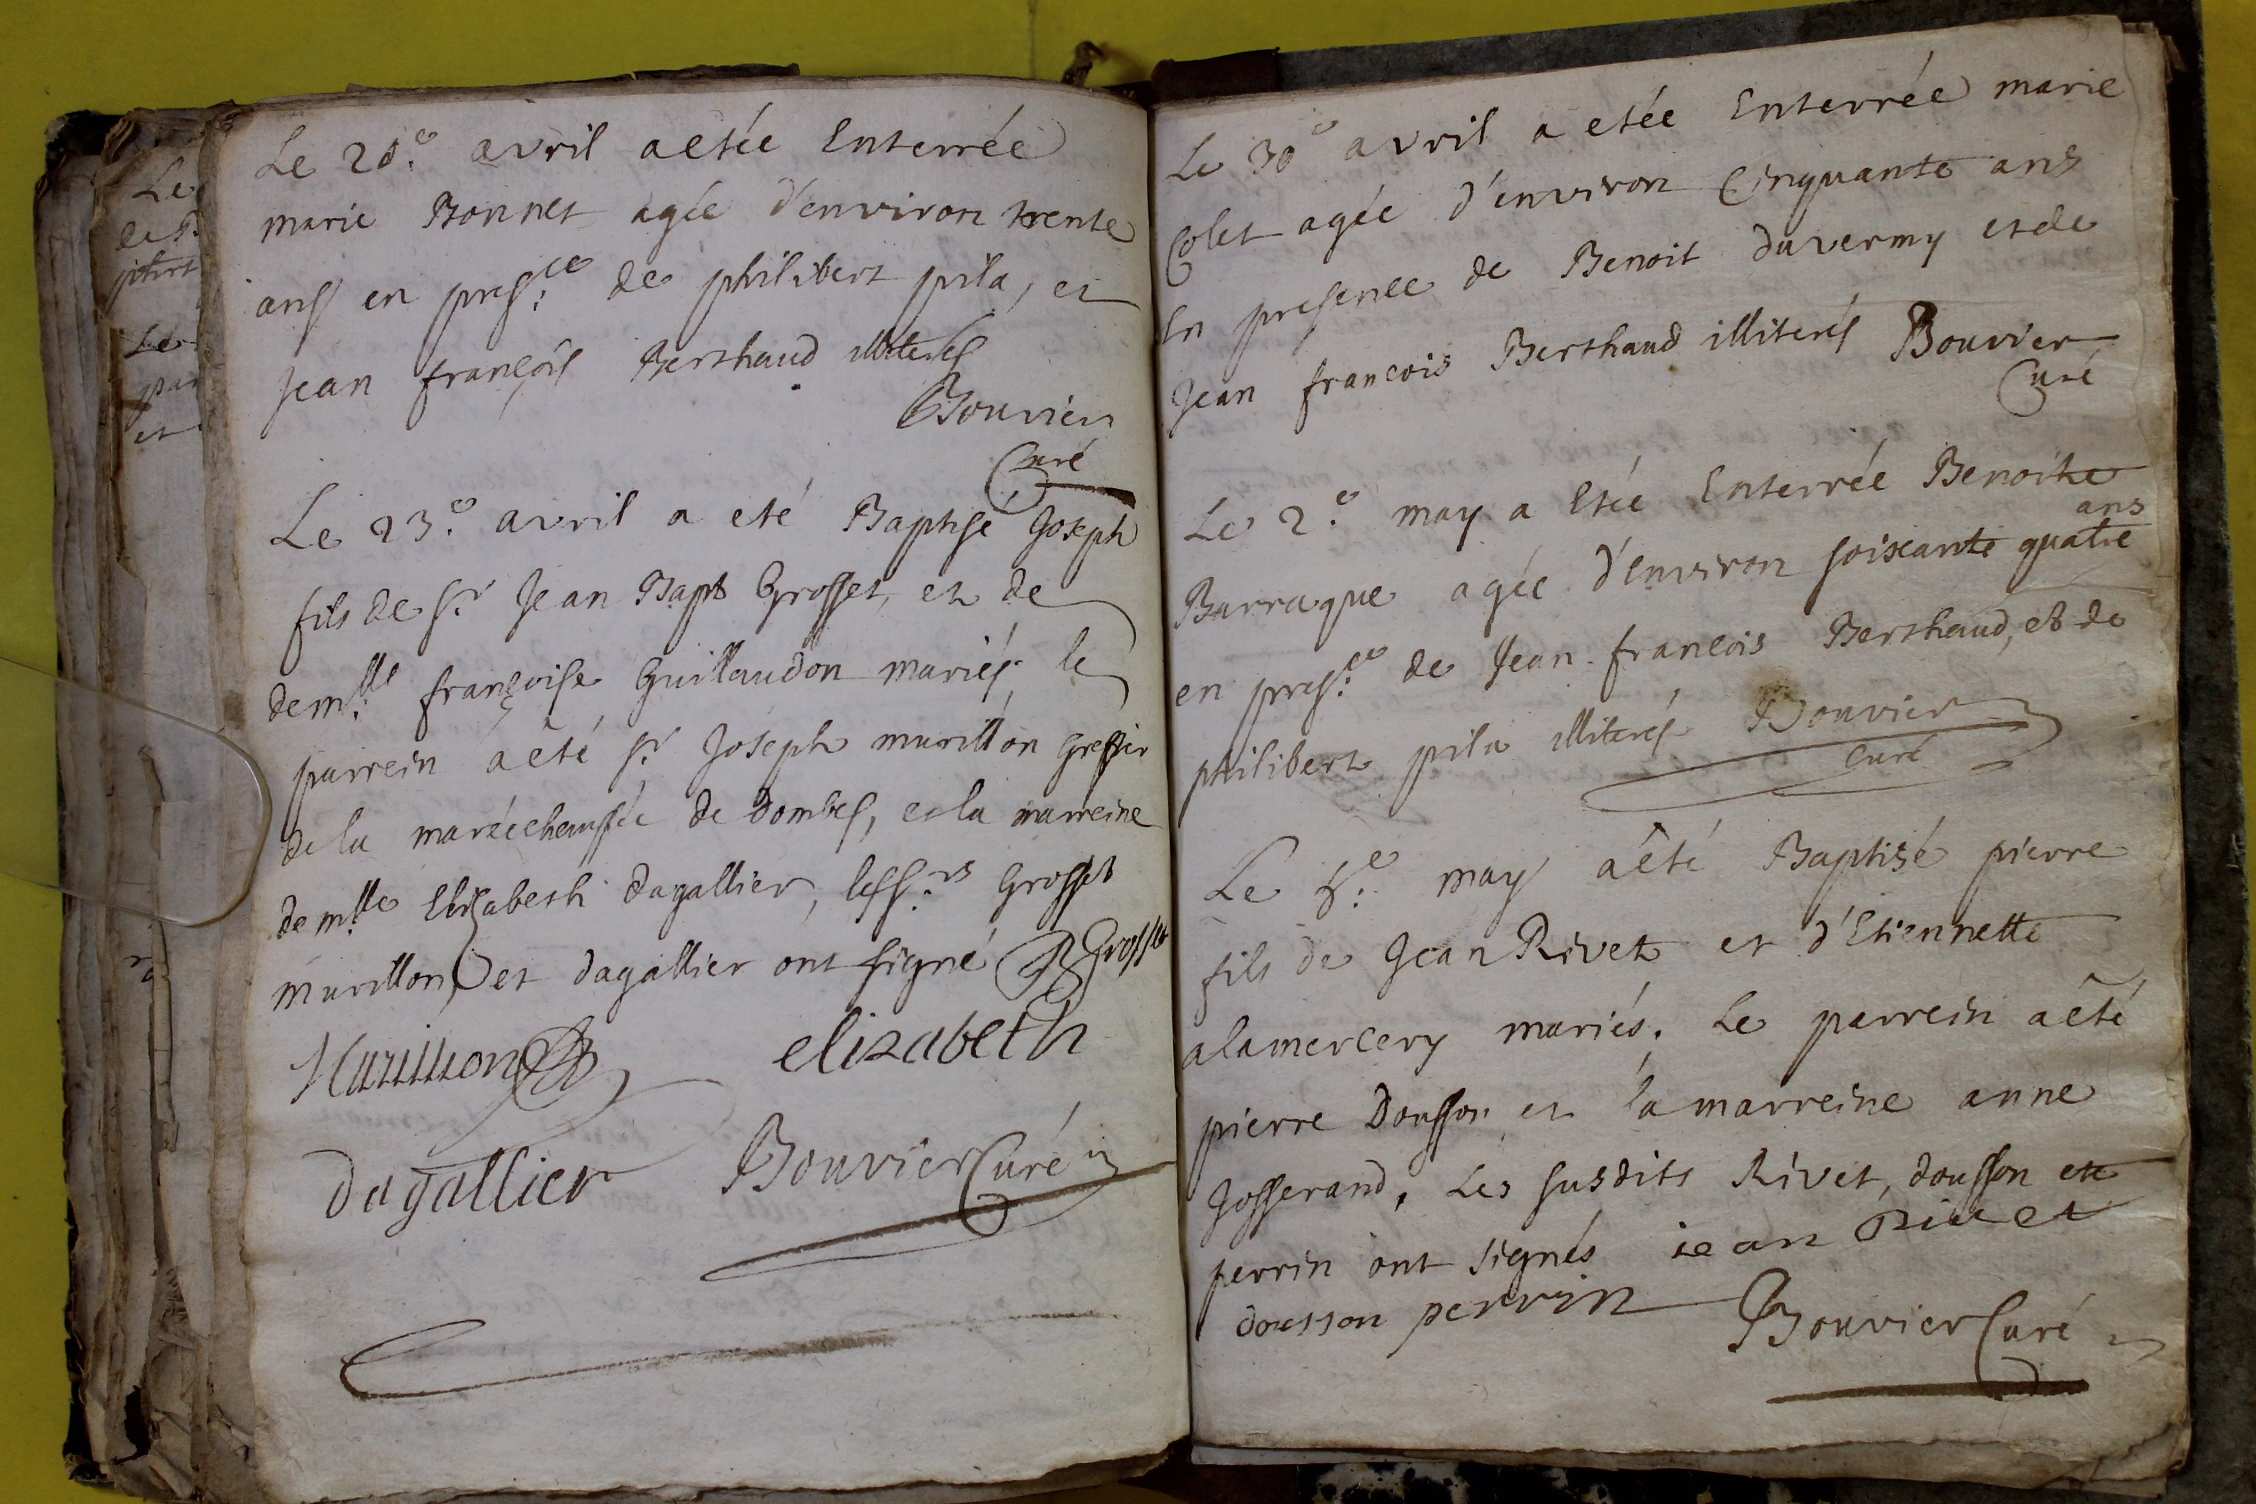 Le 20.e avril a etée Enterrée
marie Bonnet agée d'environ trente
ans en pres:ce de philibert pila, et
Jean françois Berthaud illiterés
Bouvier
Curé
Le 23.e avril a eté Baptisé Joseph
fils de Sr Jean Bapt Grosset, et de
dem:lle françoise Guillaudon mariés, le
parrein a êté Sr Joseph murillon Greffier
de la maréchaussée de dombes, et la marreine
dem:lle Elizabeth dagallier, les S:rs Grosset
murillon, et dagallier ont signé Grosset
Murillon elizabeth
dagallier Bouvier Curé
Le 30e avril a etée Enterrée marie
Colet agée d'environ Cinquante ans
En presence de Benoit duvermy et de
Jean francois Berthaud illiterés Bouvier
Curé
Le 2.e may a Etée Enterrée Benoite
Barraque agée d'environ soixante quatre ans
en pres:ce de Jean francois Berthaud, et de
philibert pila illiterés Bouvier
Curé
Le may a êté Baptisé pierre
fils de Jean Rivet et d'Etiennette
alamercery mariés. Le parrein a êté
pierre Dousson et la marreine anne
Josserand. Les susdits Rivet, dousson et
perrin ont signés jean rivet
dousson perrin
Bouvier Curé
Le
Le
par
et